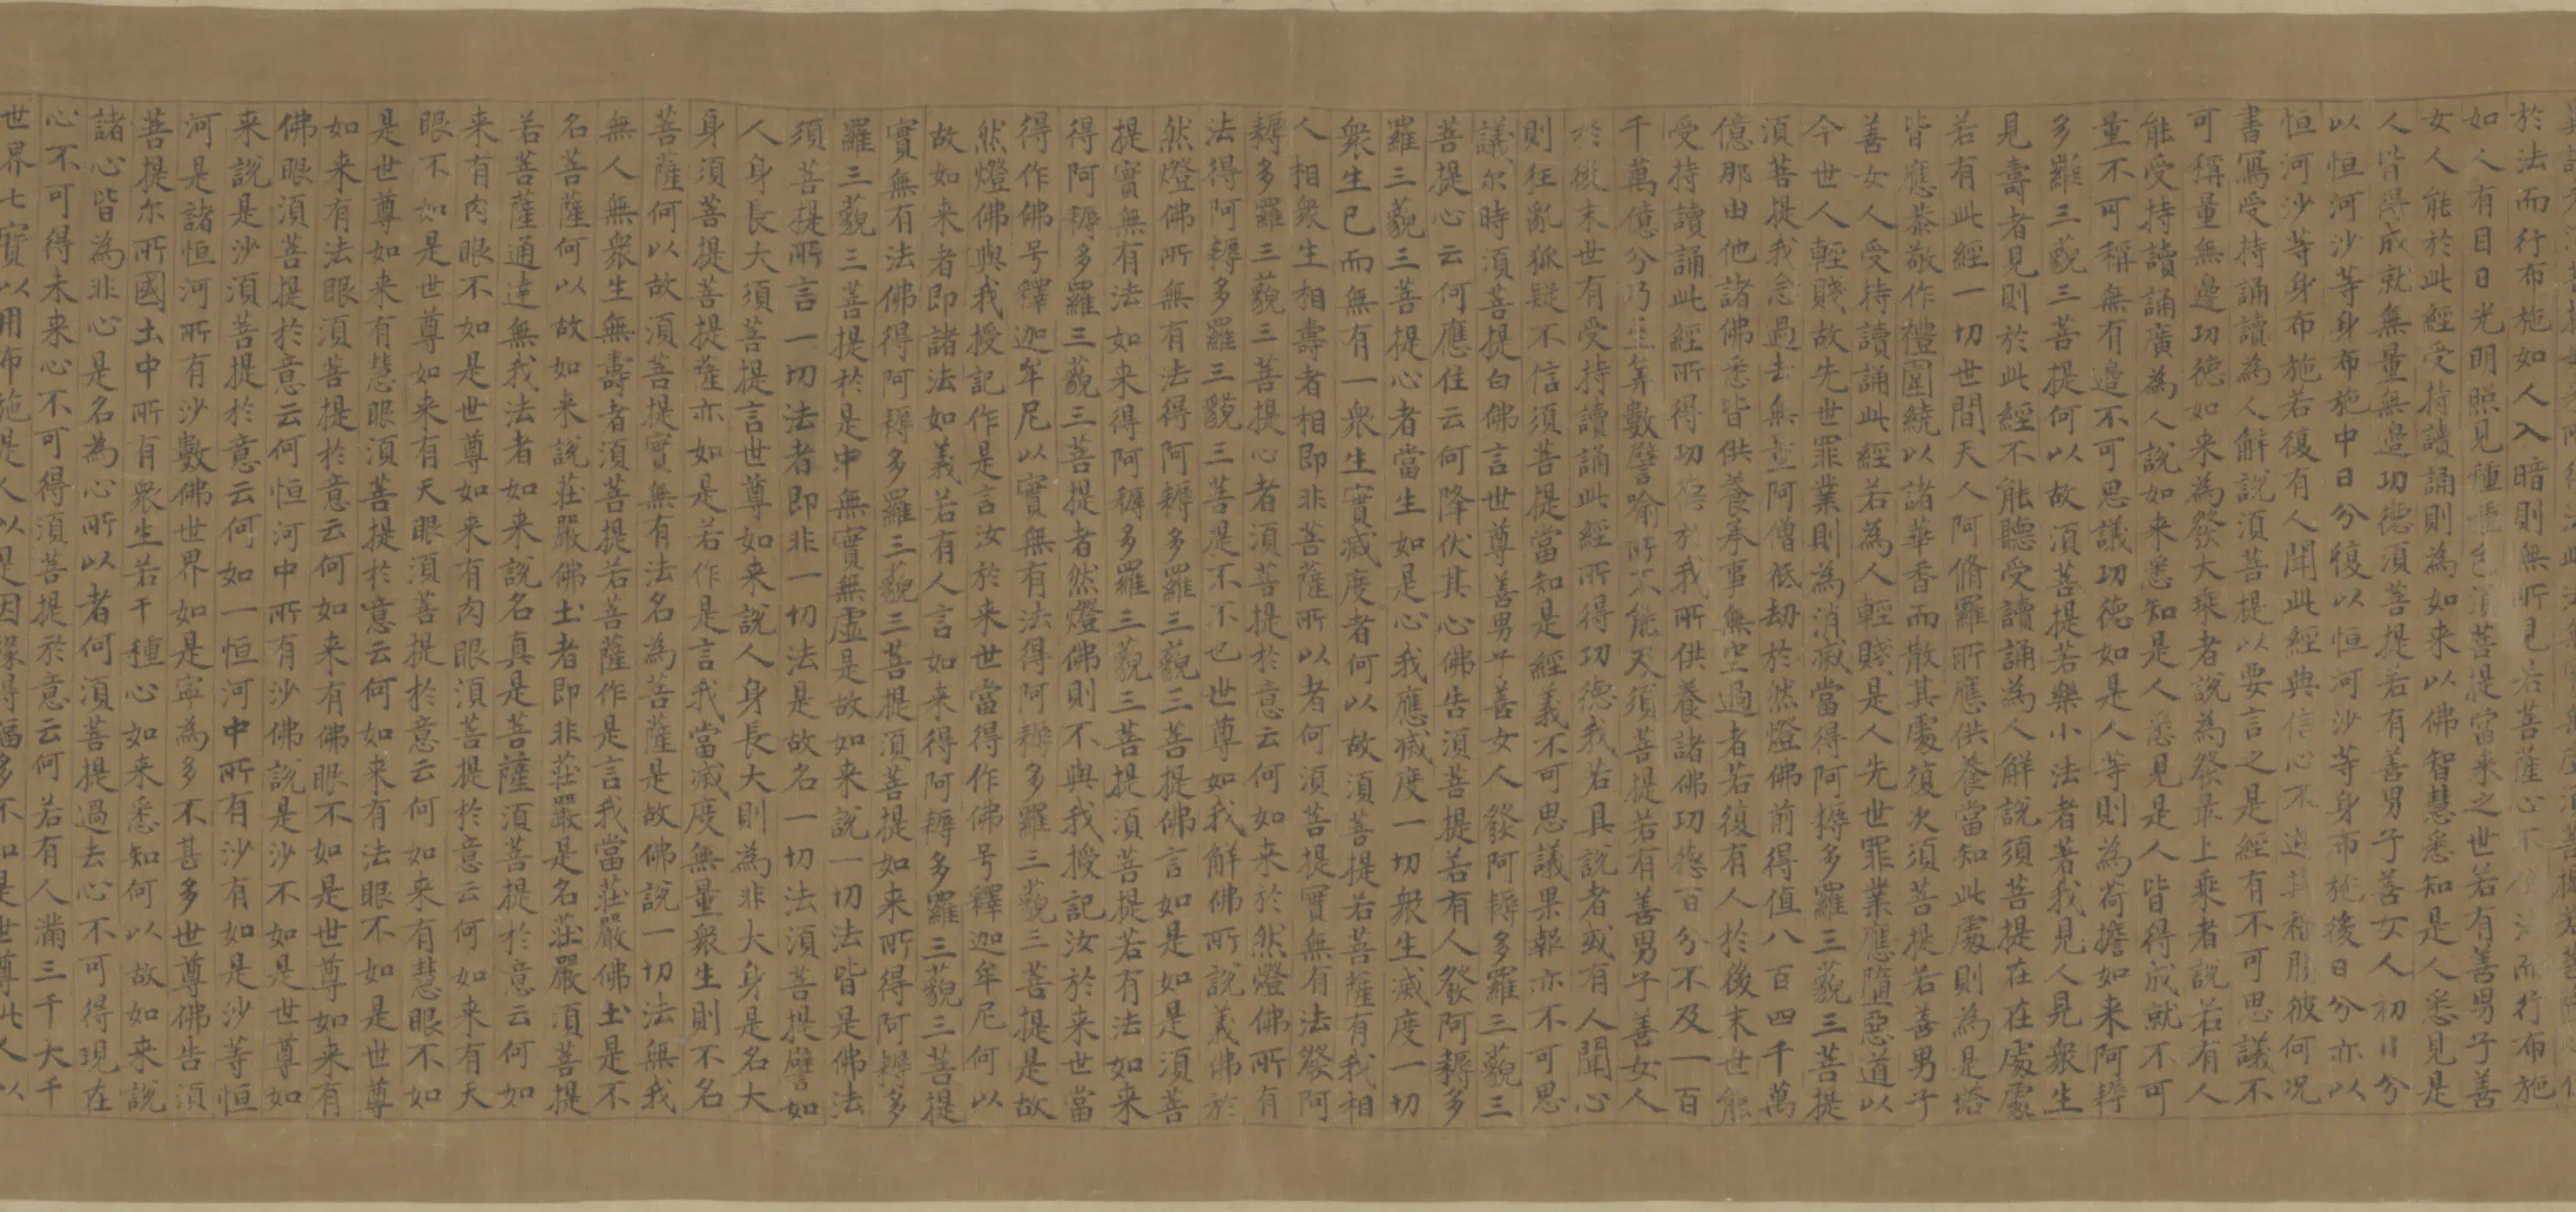 於法而行布施如人入暗則無所見若菩薩心不住法而行布施
如人有目日光明照見種種色須菩提當来之世若有善男子善
女人能於此經受持讀誦則為如来以佛智慧悉知是人悉見是
人皆得成就無量無邊功德須菩提若有善男子善女人初日分
以恒河沙等身布施中日分復以恒河沙等身布施後日分亦以
恒河沙等身布施若復有人聞此經典信心不逆其福勝彼何况
書寫受持誦讀為人解說須菩提以要言之是經有不可思議不
可稱量無邊功德如来為發大乘者說為發最上乘者說若有人
能受持讀誦廣為人說如来悉知是人悉見是人皆得成就不可
量不可稱無有邊不可思議功德如是人等則為荷擔如来阿耨
多羅三藐三菩提何以故須菩提若樂小法者著我見人見衆生
見壽者見則於此經不能聽受讀誦為人解說須菩提在在處處
若有此經一切世間天人阿脩羅所應供養當知此處則為是塔
皆應恭敬作禮圍繞以諸華香而散其處復次須菩提若善男子
善女人受持讀誦此經若為人輕賤是人先世罪業應墮惡道以
今世人輕賤故先世罪業則為消滅當得阿耨多羅三藐三菩提
須菩提我念過去無量阿僧祇劫於然燈佛前得值八百四千萬
億那由他諸佛悉皆供養承事無空過者若復有人於後末世能
受持讀誦此經所得功德於我所供養諸佛功德百分不及一百
千萬億分乃至筭數譬喻所不能及須菩提若有善男子善女人
於後末世有受持讀誦此經所得功德我若具說者或有人聞心
則狂亂狐疑不信須菩提當知是經義不可思議果報亦不可思
議尔時須菩提白佛言世尊善男子善女人發阿耨多羅三藐三
菩提心云何應住云何降伏其心佛告須菩提若有人發阿耨多
羅三藐三菩提心者當生如是心我應滅度一切衆生滅度一切
衆生已而無有一衆生實滅度者何以故須菩提若菩薩有我相
人相衆生相壽者相即非菩薩所以者何須菩提實無有法發阿
耨多羅三藐三菩提心者須菩提於意云何如来於然燈佛所有
法得阿耨多羅三藐三菩提不不也世尊如我解佛所說義佛於
然燈佛所無有法得阿耨多羅三藐三菩提佛言如是如是須菩
提實無有法如来得阿耨多羅三藐三菩提須菩提若有法如来
得阿耨多羅三藐三菩提者然燈佛則不與我授記汝於来世當
得作佛号釋迦牟尼以實無有法得阿耨多羅三藐三菩提是故
然燈佛與我授記作是言汝於来世當得作佛号釋迦牟尼何以
故如来者即諸法如義若有人言如来得阿耨多羅三藐三菩提
實無有法佛得阿耨多羅三藐三菩提須菩提如来所得阿耨多
羅三藐三菩提於是中無實無虛是故如来說一切法皆是佛法
須菩提所言一切法者即非一切法是故名一切法須菩提譬如
人身長大須菩提言世尊如来說人身長大則為非大身是名大
身須菩提菩提薩亦如是若作是言我當滅度無量衆生則不名
菩薩何以故須菩提實無有法名為菩薩是故佛說一切法無我
無人無衆生無壽者須菩提若菩薩作是言我當莊嚴佛土是不
名菩薩何以故如来說莊嚴佛土者即非莊嚴是名莊嚴須菩提
若菩薩通達無我法者如来說名真是菩薩須菩提於意云何如
来有肉眼不如是世尊如来有肉眼須菩提於意云何如来有天
眼不如是世尊如来有天眼須菩提於意云何如来有慧眼不如
是世尊如来有慧眼須菩提於意云何如来有法眼不如是世尊
如来有法眼須菩提於意云何如来有佛眼不如是世尊如来有
佛眼須菩提於意云何恒河中所有沙佛說是沙不如是世尊如
来說是沙須菩提於意云何如一恒河中所有沙有如是沙等恒
河是諸恒河所有沙數佛世界如是寧為多不甚多世尊佛告須
菩提尔所國土中所有衆生若干種心如来悉知何以故如来說
諸心皆為非心是名為心所以者何須菩提過去心不可得現在
心不可得未来心不可得須菩提於意云何若有人滿三千大千
世界七寶以用布施是人以是因緣得福多不如是世尊此人以